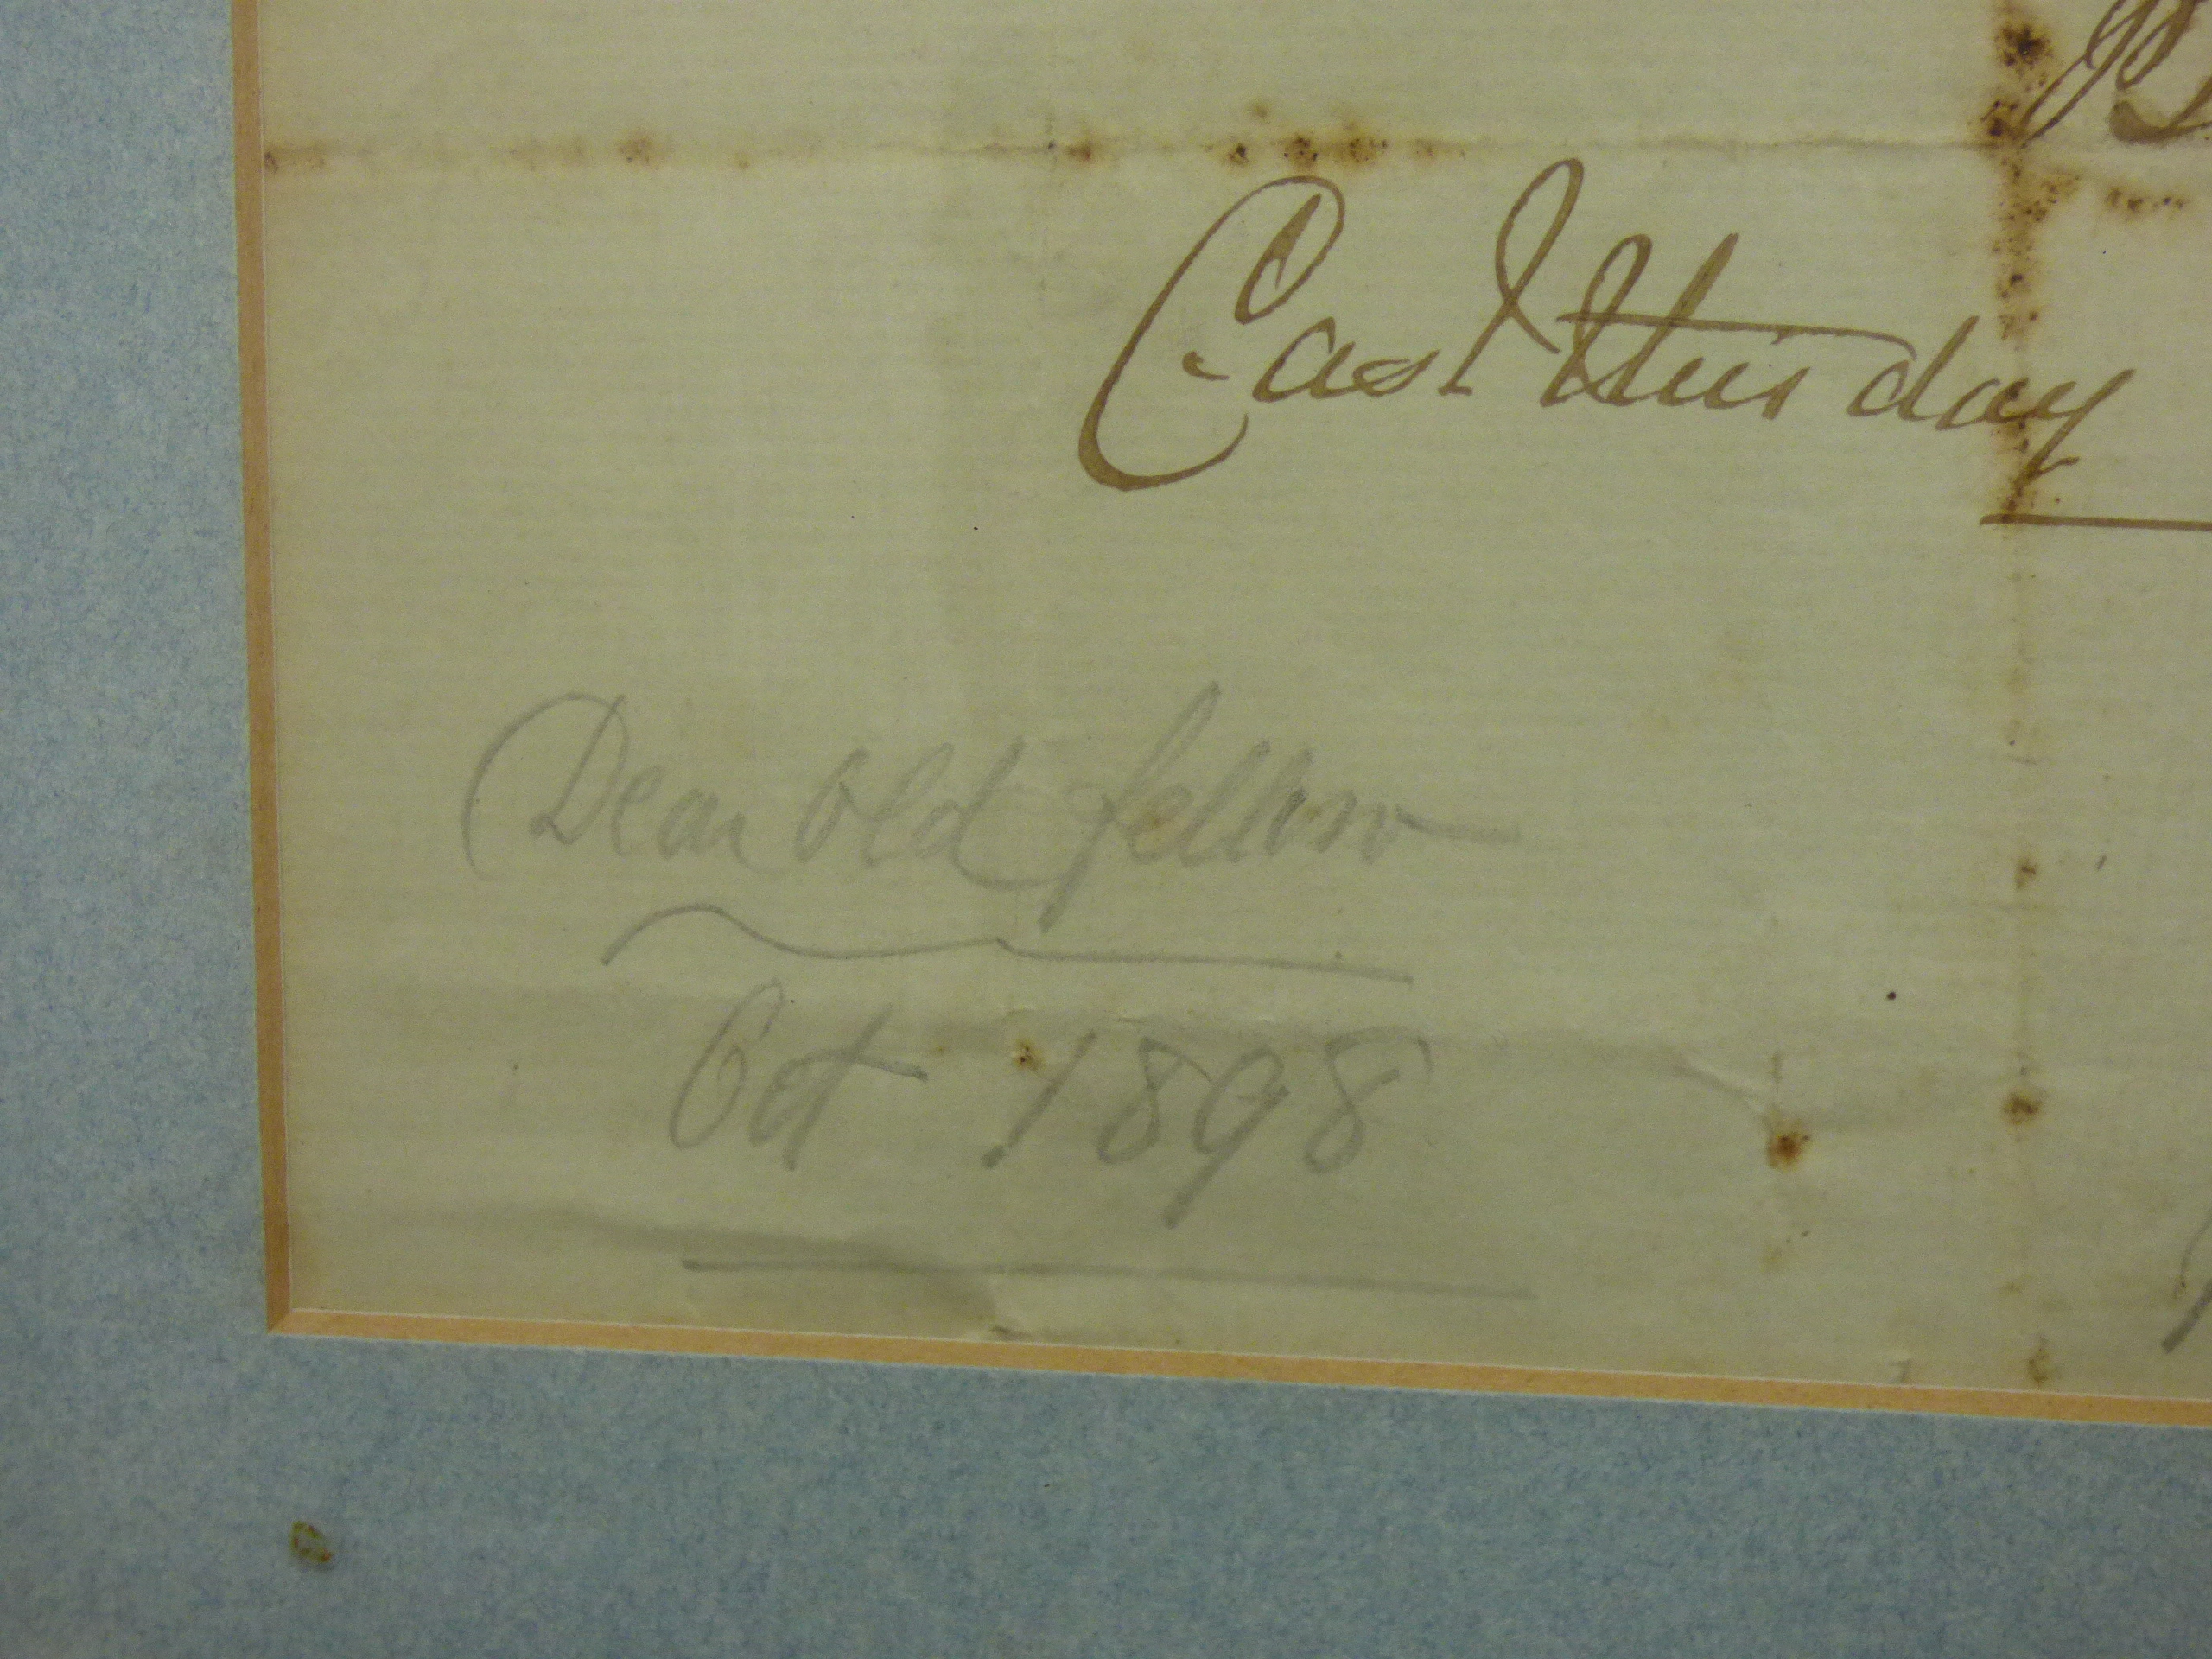 Cash this day
Dear Old fellow
Oct 1898